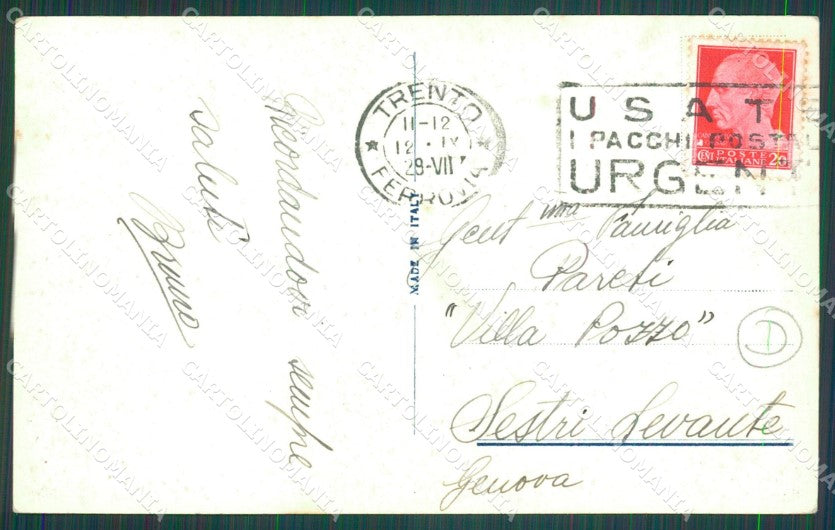 Ricordandovi sempre
saluti
Bruno
TRENTO
11-12
12 · IX
29-VII
FERROVIA
USAT
I PACCHI POSTAL
URGENT
POSTE
ITALIANE
20
MADE IN ITALY
Gent ma Famiglia
Pareti
"Villa Pozzo"
D
Sestri Levante
Genova
CARTOLINOMANIA